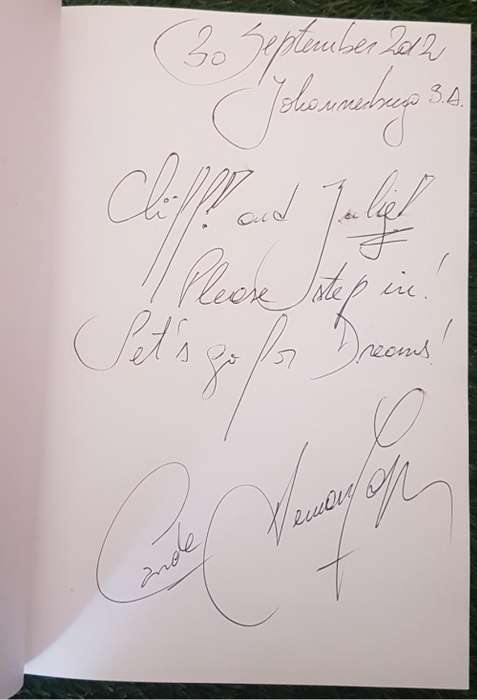 30 September 2012
Johannesburgo S.A.
Cliff! and Juliet
Please step in!
Let's go for Dreams!
Cande Herman Zapp